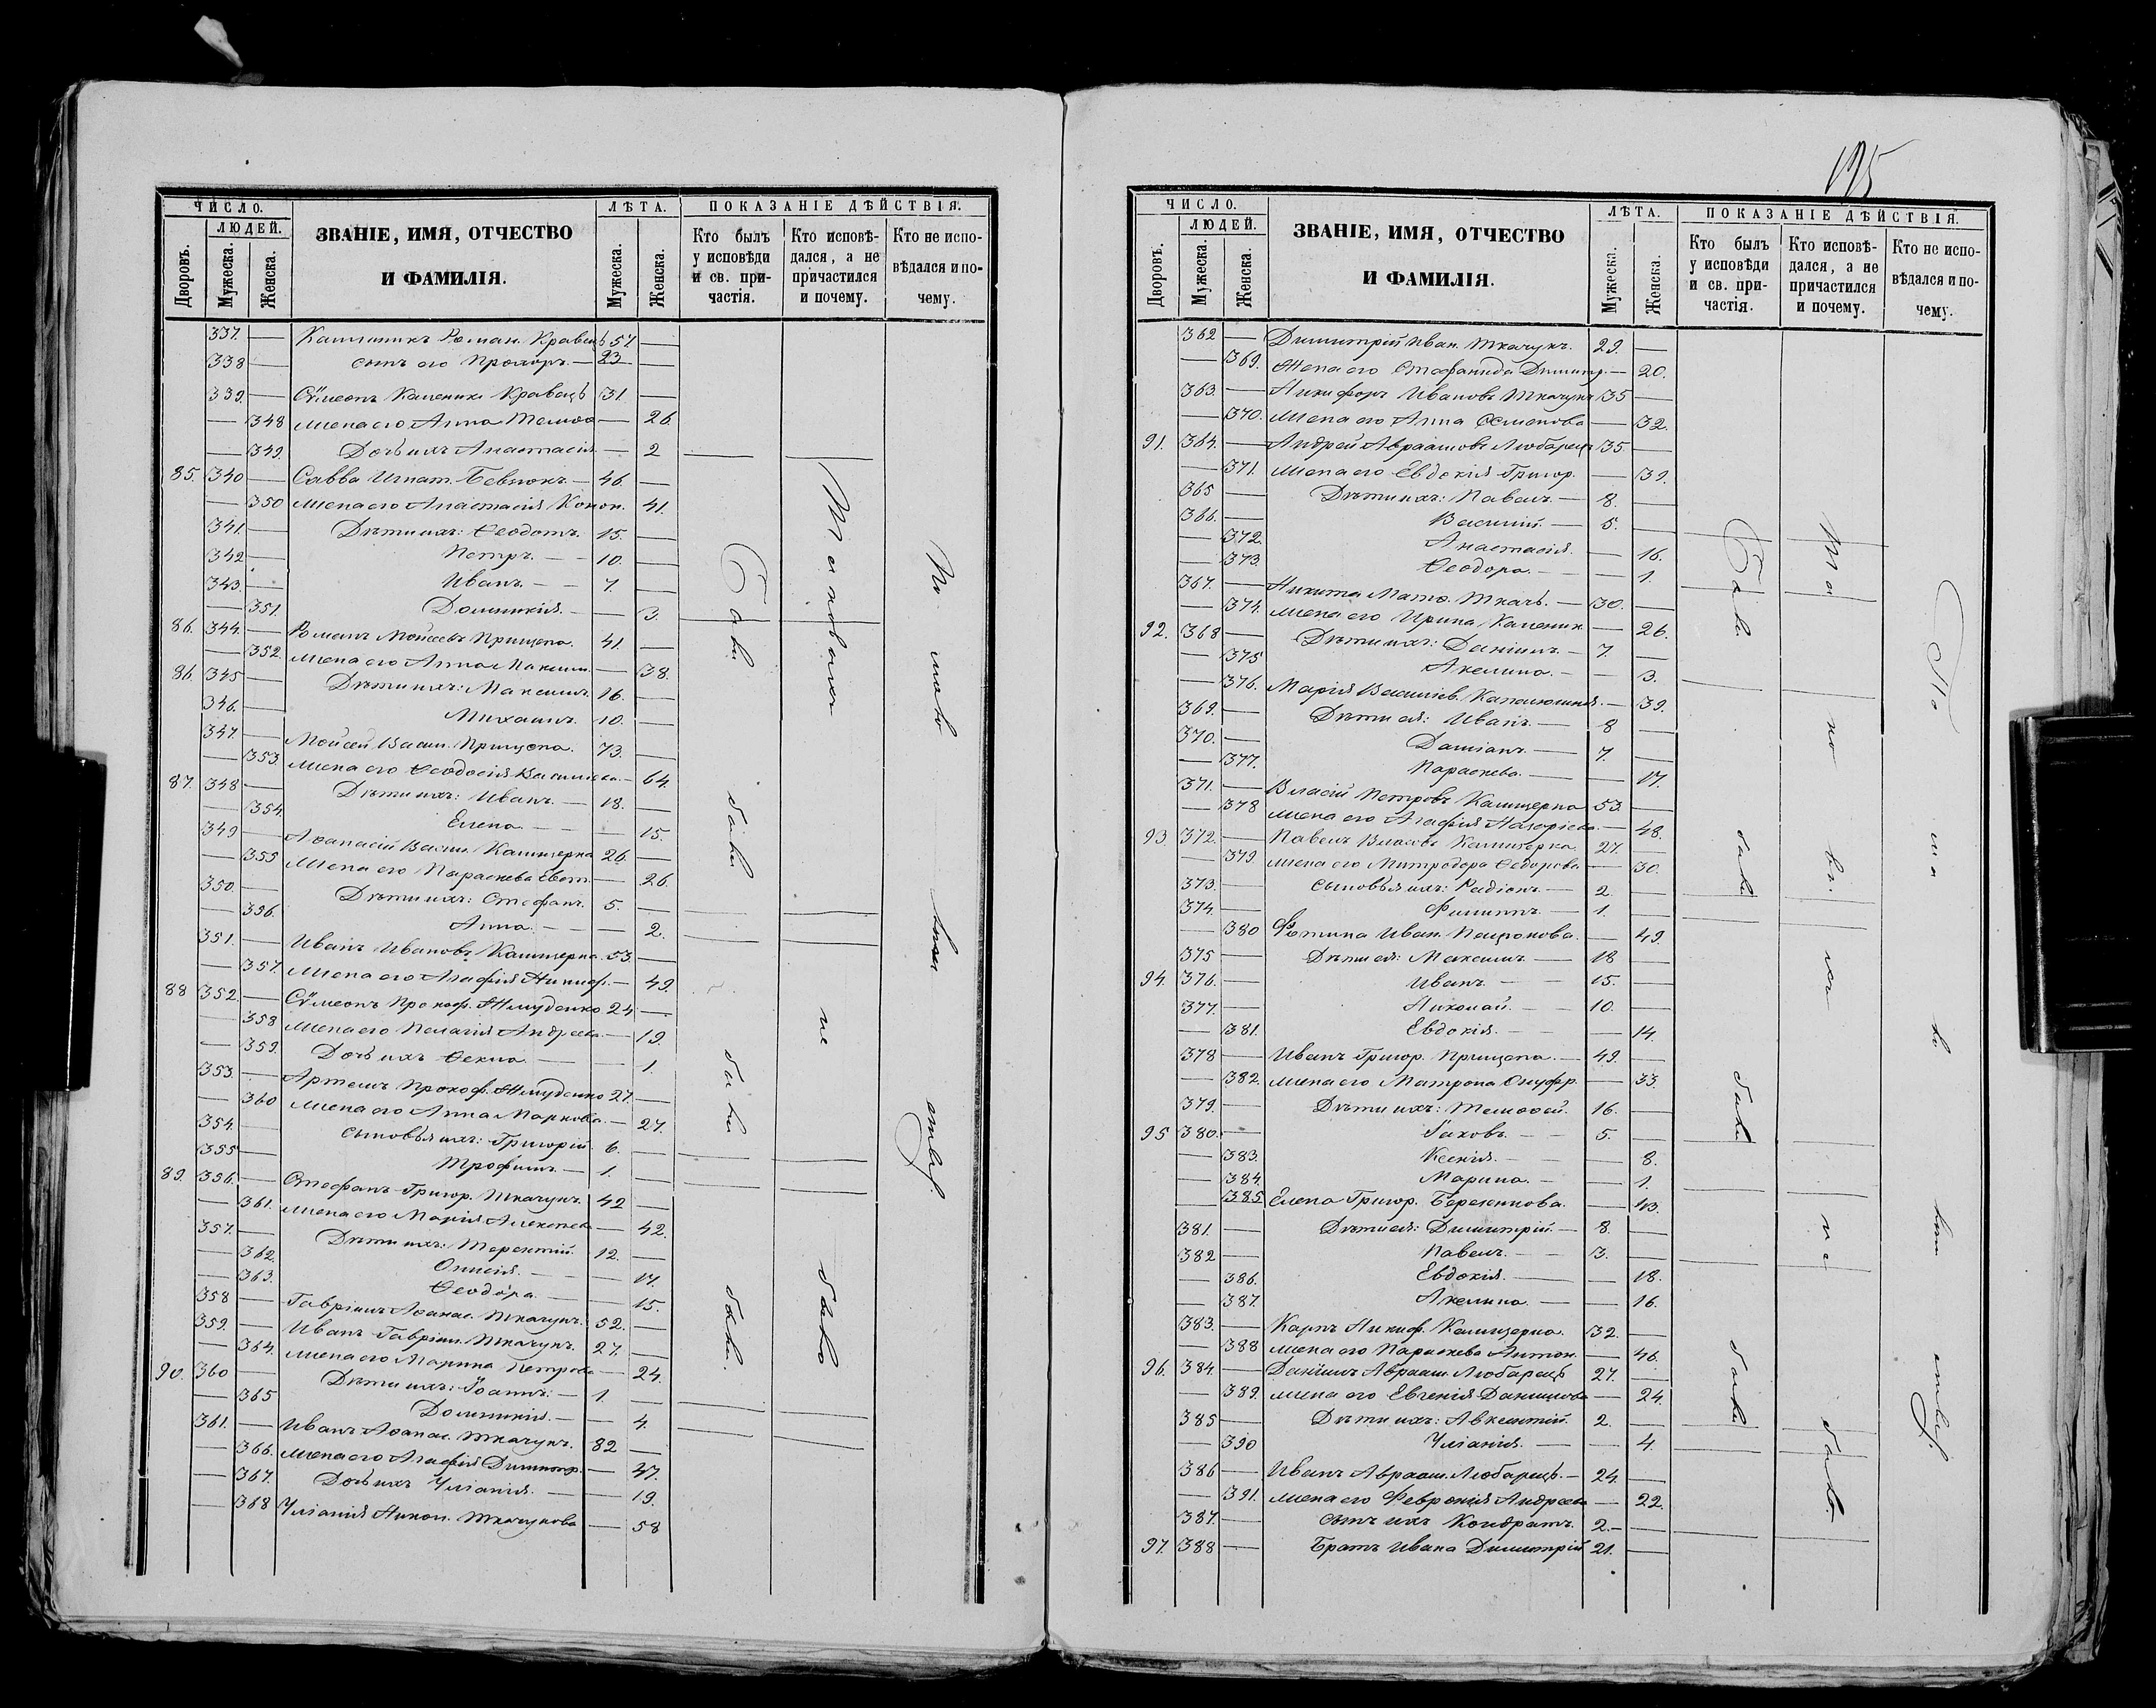 175
ЧИСЛО. ЗВАНІЕ, ИМЯ, ОТЧЕСТВО И ФАМИЛІЯ. ЛѢТА. ПОКАЗАНІЕ ДѢЙСТВІЯ.
Дворовъ. ЛЮДЕЙ. Мужеска. Женска. Мужеска. Женска. Кто былъ у исповѣди и св. причастія. Кто исповѣдался, а не причастился и почему. Кто не исповѣдался и почему.
337. Каллиникъ Роман. Кравецъ 57
338 сынъ его Прохоръ 23
339. Сѷмеонъ Калиник. Кравецъ 31
348 Жена его Анна 26.
349. Дочь ихъ Анастасія 2
85. 340 Савва Игнат. Бевзюкъ 46.
350 Жена его Анастасія Конон. 41.
341. Дѣти ихъ: Ѳеодотъ. 15.
342 Петръ. 10.
343. Иванъ. 7.
351. Домникія. 3.
86. 344. Романъ Моѵсеевъ Прищепа. 41.
352. Жена его Анна Максим. 38.
86. 345 Дѣти ихъ: Максимъ. 16.
346. Михаилъ. 10.
347. Моѵсей Васил. Прищепа. 73.
353. Жена его Ѳеодосія Васильева. 64.
87. 348 Дѣти ихъ: Иванъ. 18.
354. Елена 15.
349 Аѳанасій Васил. Кашперка 26.
355 Жена его Параскева Евст. 26.
350. Дѣти ихъ: Стефанъ. 5.
356. Анна. 2.
351. Иванъ Ивановъ Кашперка. 53.
357. Жена его Агафія Никиф. 49.
88 352. Сѷмеонъ Прокоф. 24
358 Жена его Пелагія Андреева 19.
359. Дочь ихъ Ѳекла 1.
353. Артемъ Прокоф. 27.
360 Жена его Анна Маркова. 27.
354. Сыновья ихъ: Григорій. 6.
355 Трофимъ. 1.
89. 356. Стефанъ Григор. Ткачукъ. 42
361. Жена его Марія Алексѣева 42.
357. Дѣти ихъ: Терентій. 12.
362. Онисія. 17.
363. Ѳеодора. 15.
358 Гавріилъ Аѳанас. Ткачукъ. 52.
359. Иванъ Гавріил. Ткачукъ. 27.
364. Жена его Марина Петрова 24.
90. 360 Дѣти ихъ: Іоаннъ. 1.
365 Домникія. 4.
361. Иванъ Аѳанас. Ткачукъ. 82
366. Жена его Агафія Димитр. 47.
367. Дочь ихъ Уліанія. 19.
368 Уліанія Никол. Ткачукова 58
Были были были были.
Таковыхъ не было
По
ЧИСЛО. ЗВАНІЕ, ИМЯ, ОТЧЕСТВО И ФАМИЛІЯ. ЛѢТА. ПОКАЗАНІЕ ДѢЙСТВІЯ.
Дворовъ. ЛЮДЕЙ. Мужеска. Женска. Мужеска. Женска. Кто былъ у исповѣди и св. причастія. Кто исповѣдался, а не причастился и почему. Кто не исповѣдался и почему.
362 Димитрій Иван. Ткачукъ. 29.
369. Жена его Стефанида Димитр. 20.
363. Никифоръ Ивановъ Ткачукъ 35
370. Жена его Анна Семенова 32.
91. 364. Андрей Авраамовъ Любарецъ 35.
371. Жена его Евдокія Григор. 39.
365 Дѣти ихъ: Павелъ. 8.
366. Василій. 5.
372. Анастасія. 16.
373. Ѳеодора. 1.
367. Никита Матѳ. Ткачъ. 30.
374. Жена его Ирина Калиник. 26.
92. 368 Дѣти ихъ: Даніилъ. 7.
375 Акелина. 3.
376. Марія Василіев. 39.
369. Дѣти ея: Иванъ. 8
370. Даміанъ. 7.
377. Параскева. 17.
371. Власій Петровъ Кашперка 53.
378 Жена его Агафія 48.
93. 372. Павелъ Власовъ Кашперка. 27.
379. Жена его Митродора Ѳедорова 30.
373. Сыновья ихъ: Радіонъ. 2.
374. Филиппъ. 1.
380 Фотина Иван. 49.
375 Дѣти ея: Максимъ 18
94. 376. Иванъ. 15.
377. Николай. 10.
381. Евдокія. 14.
378 Иванъ Григор. Прищепа. 49.
382. Жена его Матрона Онуфр. 33.
379. Дѣти ихъ: Тимоѳей. 16.
95 380. Іаковъ. 5.
383. Ксенія. 8.
384. Марина. 1.
385 Елена Григор. 43.
381. Дѣти ея: Димитрій. 8.
382 Павелъ. 3.
386. Евдокія. 18.
387. Акелина. 16.
383. Карпъ Никиф. Кашперка. 32.
388 Жена его Параскева Антон. 46.
96. 384. Даніилъ Авраам. Любарецъ 27.
389. Жена его Евгенія Данилова 24.
385 Дѣти ихъ: Авксентій. 2.
390 Уліанія. 4.
386 Иванъ Авраам. Любарецъ. 24.
391. Жена его Февронія Андреева 22.
387. Сынъ ихъ Кондратъ. 2.
97. 388 Братъ Ивана Димитрій 21.
Были были были были
Таковыхъ не было.
По